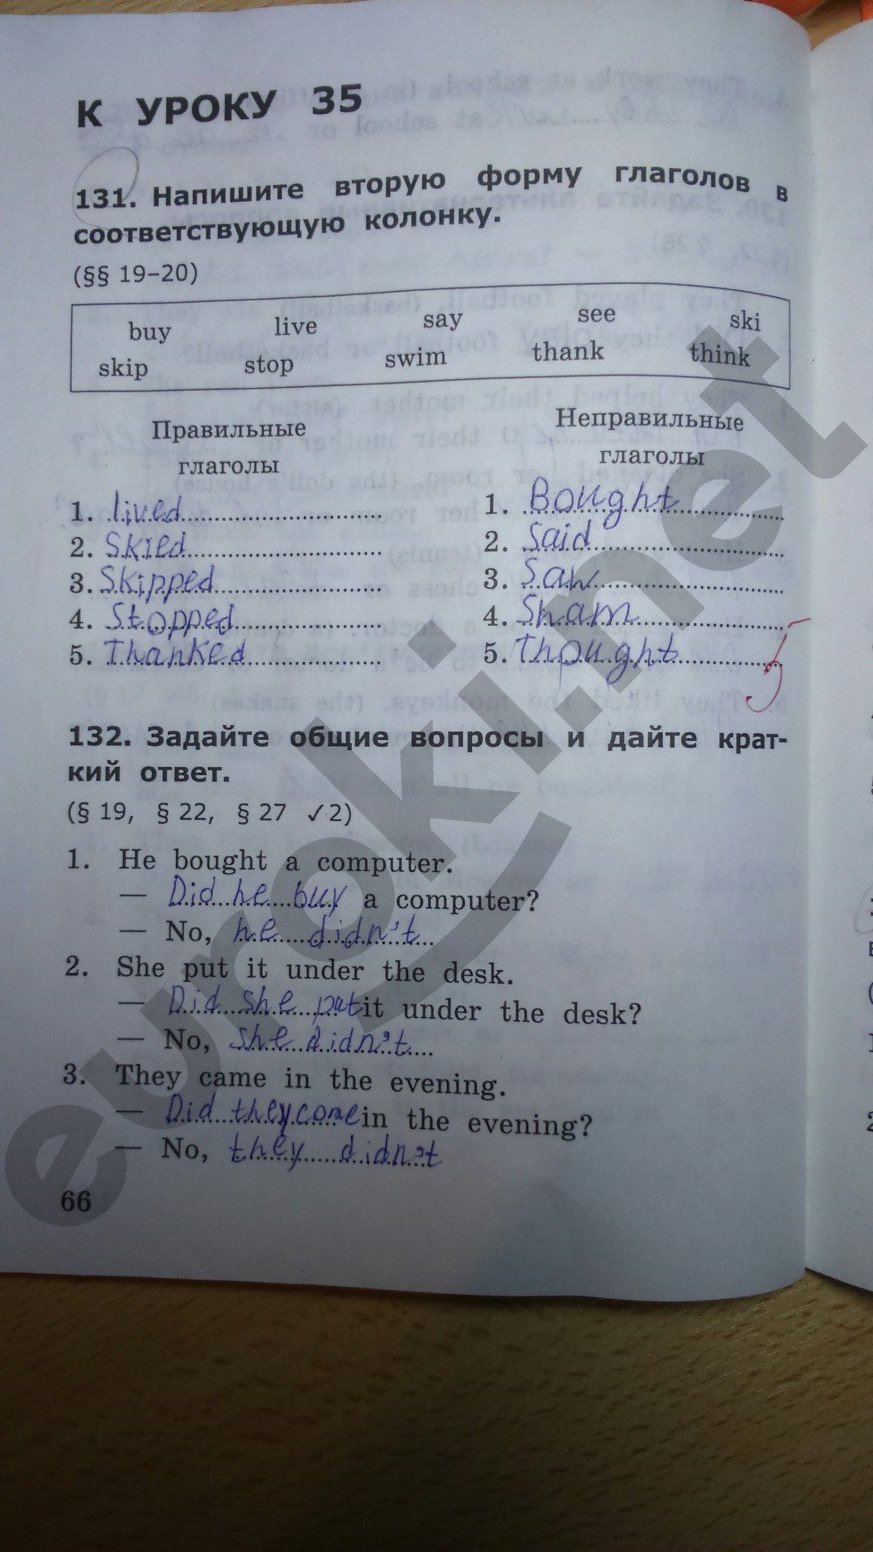 К УРОКУ 35
131. Напишите вторую форму глаголов в
соответствующую колонку.
(§§ 19–20)
buy live say see ski
skip stop swim thank think
Правильные глаголы
1. lived
2. Skied
3. Skipped
4. Stopped
5. Thanked
Неправильные глаголы
1. Bought
2. Said
3. Saw
4. Sham
5. Thought
132. Задайте общие вопросы и дайте крат-
кий ответ.
(§ 19, § 22, § 27 ✓2)
1. He bought a computer.
— Did he buy a computer?
— No, he didn't
2. She put it under the desk.
— Did she put it under the desk?
— No, she didn't
3. They came in the evening.
— Did they come in the evening?
— No, they didn't
66
euroki.net